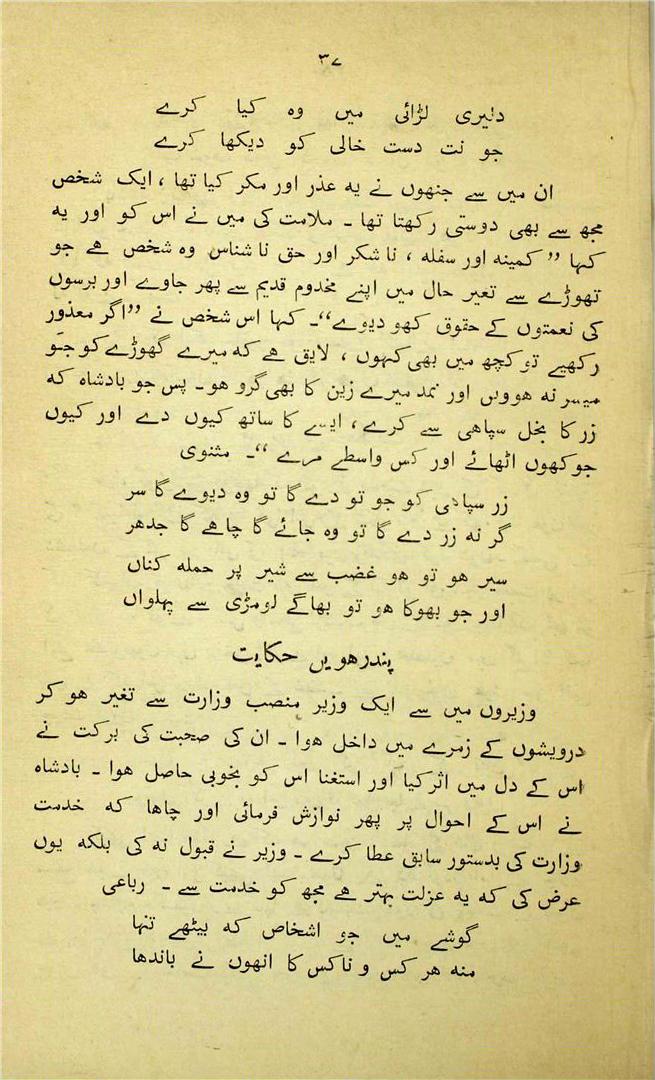 ۳۷
دلیری لڑائی میں وہ کیا کرے
جو نت دست خالی کو دیکھا کرے
ان میں سے جنھوں نے یہ عذر اور مکر کیا تھا ، ایک شخص
مجھ سے بھی دوستی رکھتا تھا ۔ ملامت کی میں نے اس کو اور یہ
کہا ” کمینہ اور سفلہ ، نا شکر اور حق نا شناس وہ شخص ہے جو
تھوڑے سے تغیر حال میں اپنے مخدوم قدیم سے پھر جاوے اور برسوں
کی نعمتوں کے حقوق کھو دیوے“۔ کہا اس شخص نے ”اگر معذور
رکھیے تو کچھ میں بھی کہوں ، لایق ہے کہ میرے گھوڑے کو جَو
میسر نہ ہوویں اور نمد میرے زین کا بھی گرو ہو۔ پس جو بادشاہ کہ
زر کا بخل سپاہی سے کرے ، ایسے کا ساتھ کیوں دے اور کیوں
جوکھوں اٹھائے اور کس واسطے مرے “۔ مثنوی
زر سپاہی کو جو تو دے گا تو وہ دیوے گا سر
گر نہ زر دے گا تو وہ جائے گا چاہے گا جدھر
سیر ہو تو ہو غضب سے شیر پر حملہ کناں
اور جو بھوکا ہو تو بھاگے لومڑی سے پہلواں
پندرھویں حکایت
وزیروں میں سے ایک وزیر منصب وزارت سے تغیر ہو کر
درویشوں کے زمرے میں داخل ہوا ۔ ان کی صحبت کی برکت نے
اس کے دل میں اثر کیا اور استغنا اس کو بخوبی حاصل ہوا ۔ بادشاہ
نے اس کے احوال پر پھر نوازش فرمائی اور چاہا کہ خدمت
وزارت کی بدستور سابق عطا کرے ۔ وزیر نے قبول نہ کی بلکہ یوں
عرض کی کہ یہ عزلت بہتر ہے مجھ کو خدمت سے ۔ رباعی
گوشے میں جو اشخاص کہ بیٹھے تنہا
منہ ہر کس و ناکس کا انھوں نے باندھا